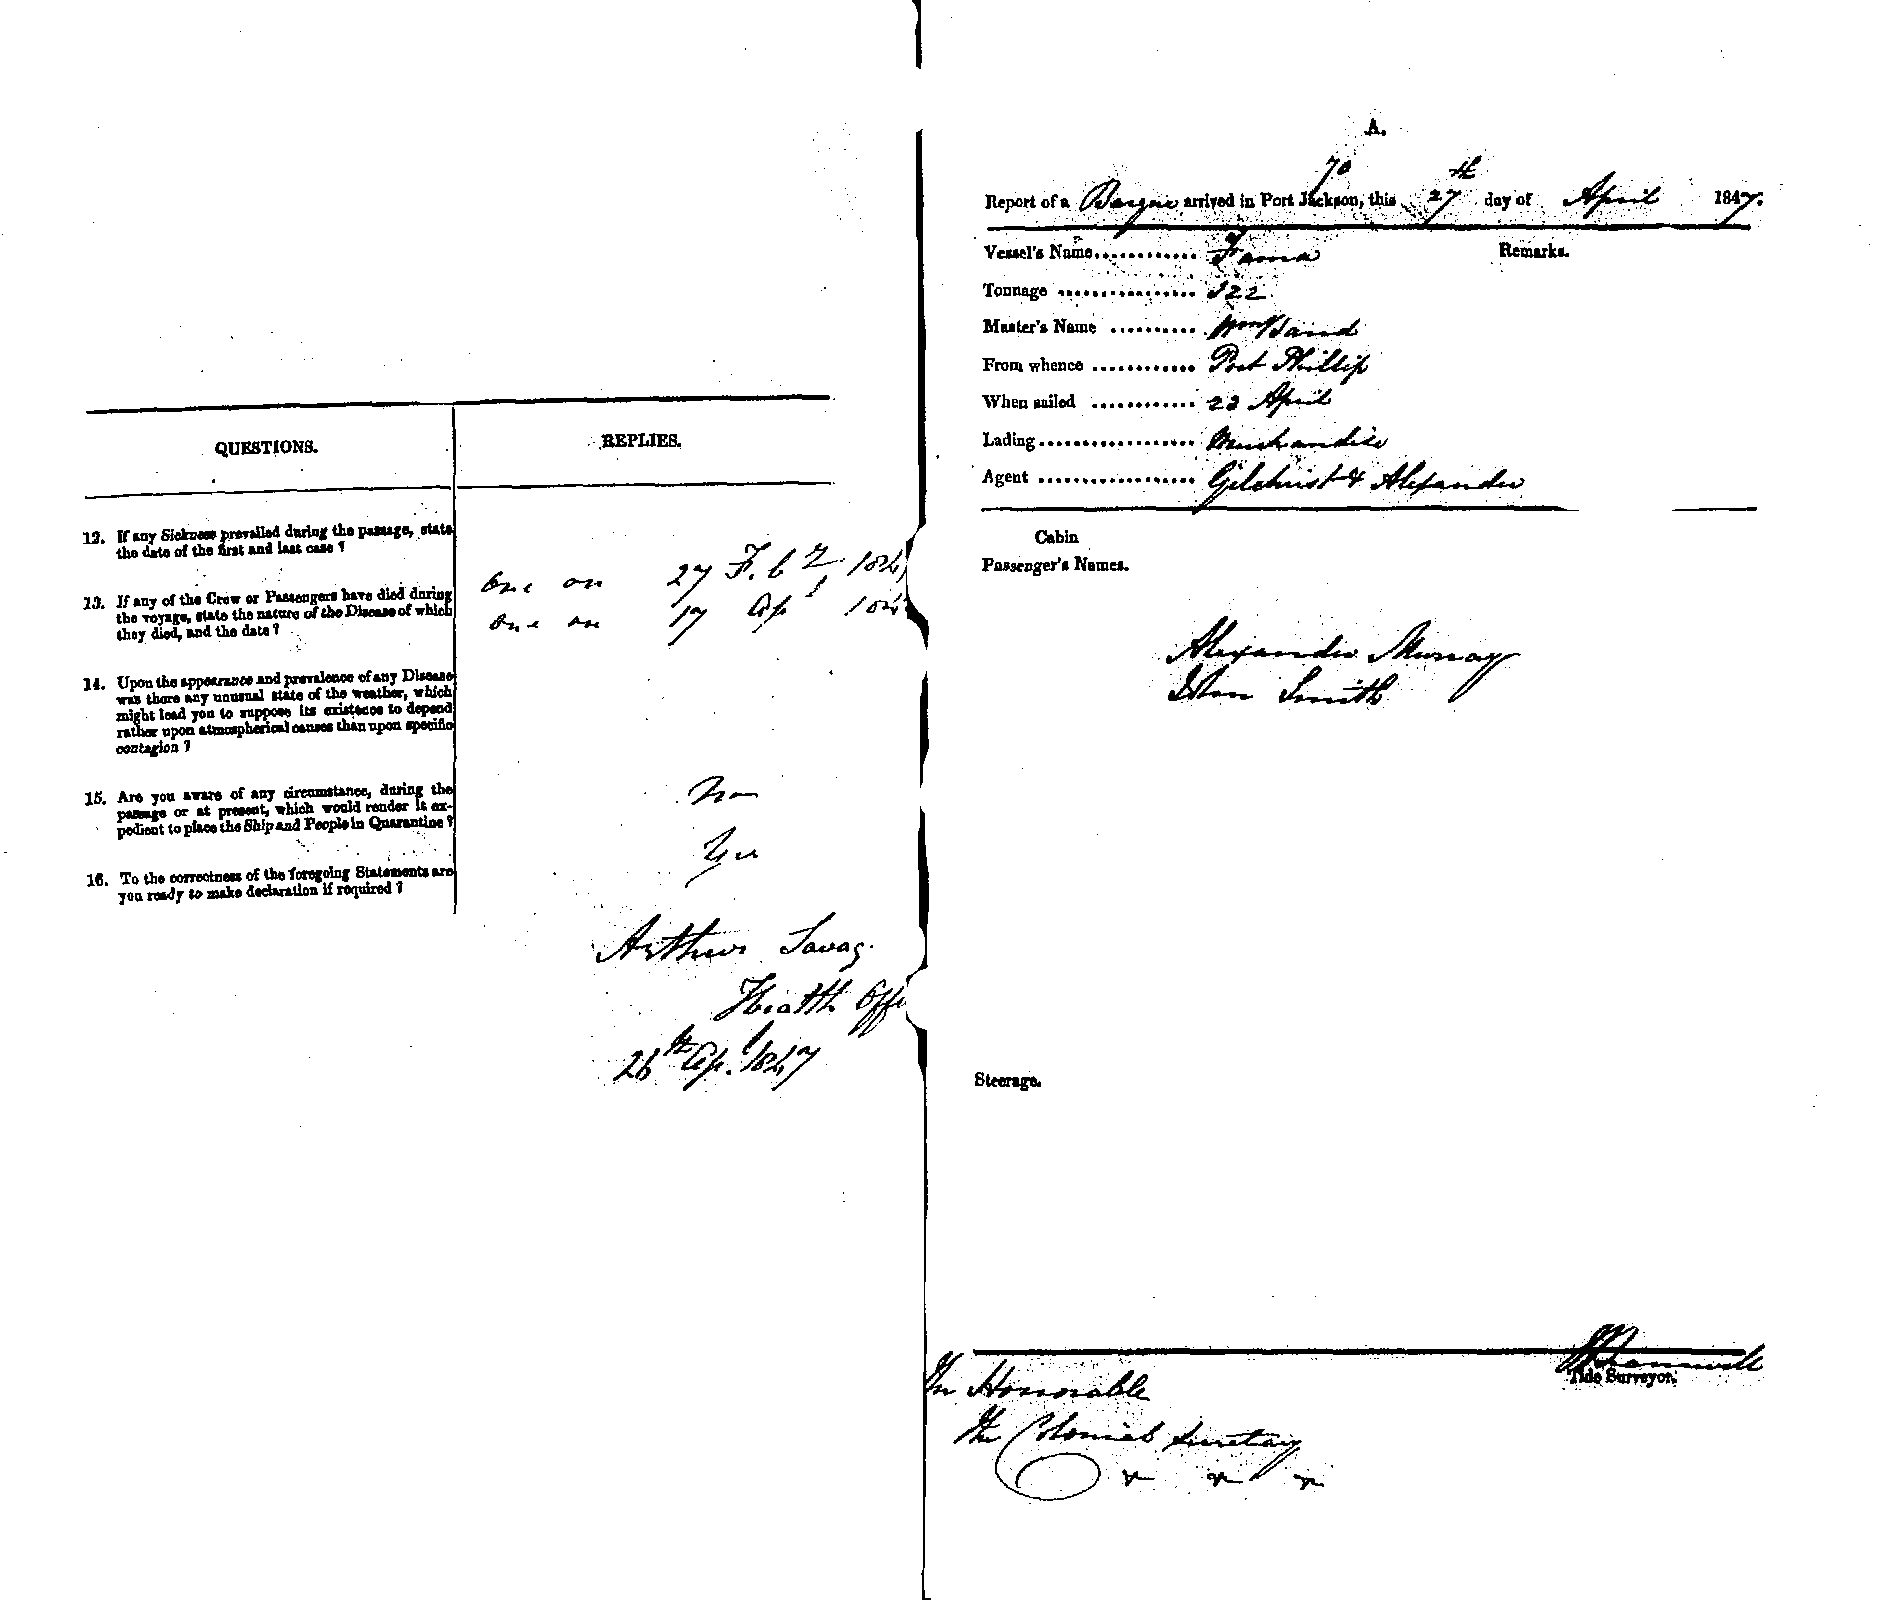 QUESTIONS.
REPLIES.
12. If any Sickness prevailed during the passage, state
the date of the first and last case ?
13. If any of the Crew or Passengers have died during
the voyage, state the nature of the Disease of which
they died, and the date ?
one on 27 Feby 184
one on 17 Apl 184
14. Upon the appearance and prevalence of any Disease
was there any unusual state of the weather, which
might lead you to suppose its existence to depend
rather upon atmospherical causes than upon specific
contagion ?
15. Are you aware of any circumstance, during the
passage or at present, which would render it ex-
pedient to place the Ship and People in Quarantine ?
16. To the correctness of the foregoing Statements are
you ready to make declaration if required ?
Yes
Arthur Savag
Health Offi
26th Apl. 1847
A.
70
Report of a Barque arrived in Port Jackson, this 27th day of April 1847.
Vessel's Name............ Fama
Remarks.
Tonnage ................ 322
Master's Name .......... Wm
From whence ............ Port Phillip
When sailed ............ 23 April
Lading.................. Merchandise
Agent .................. Gilchrist & Alexander
Cabin
Passenger's Names.
Alexander Murray
John Smith
Steerage.
Tide Surveyor.
The Honorable
The Colonial Secretary